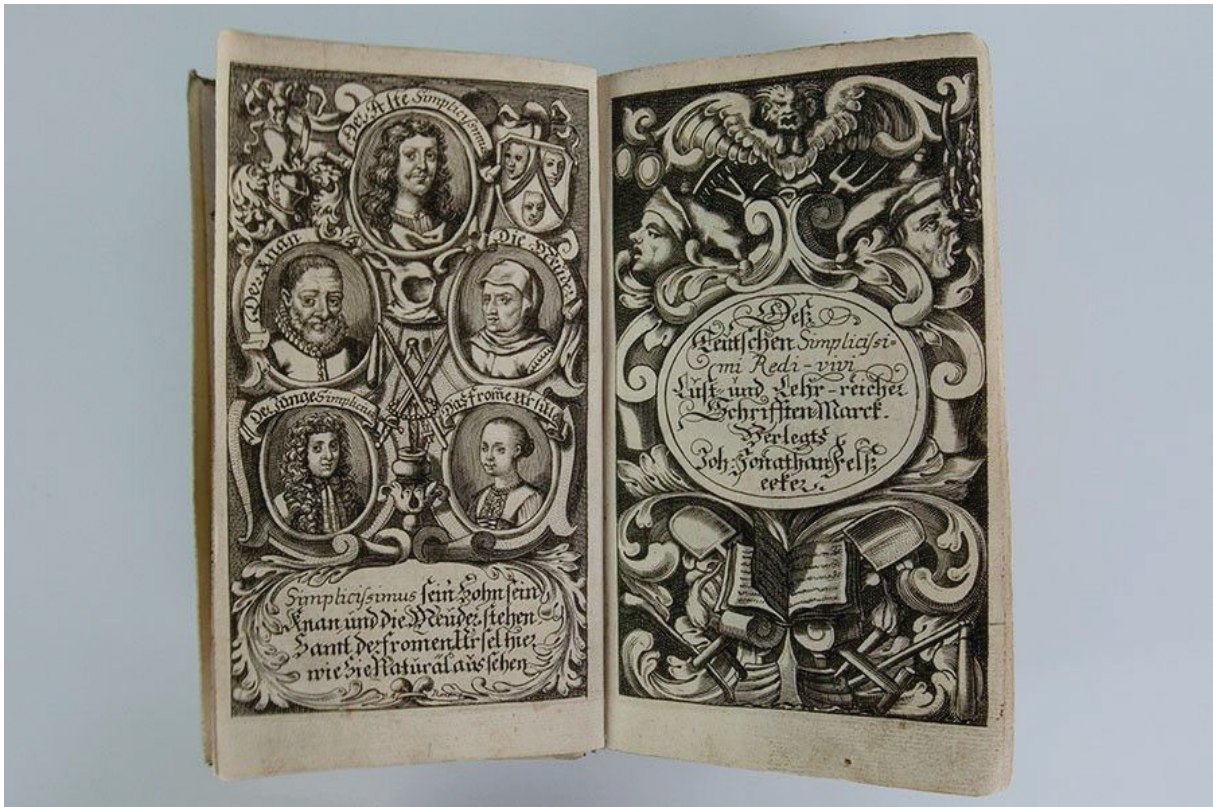 Der Alte Simplicissimus
Der Knan
Die Meüder
Der Junge Simplicius
Das from̅e Ursule
Simplicissimus sein Sohn sein
Knan und die Meüder stehen
Samt der fromen Ursel hier
wie Sie Natüral aüssehen
Deß
Teütschen Simplicissi-
mi Redi-vivi
Lust- und Lehr-reicher
Schrifften Marck.
Verlegts
Joh: Jonathan Felß
ecker.